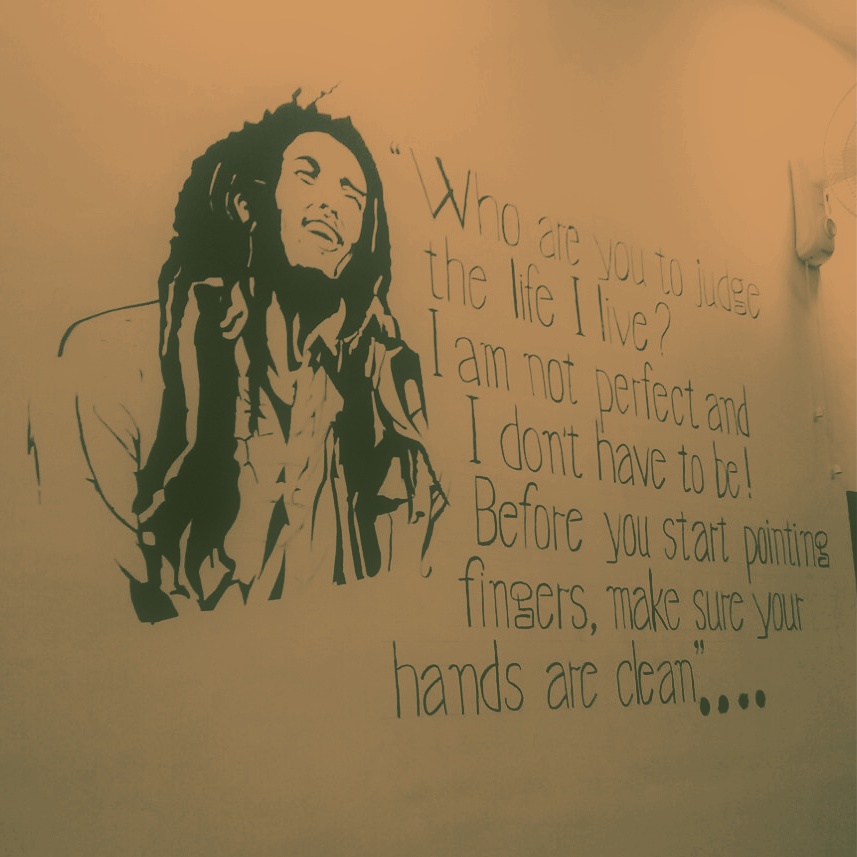 "Who are you to judge
the life I live?
I am not perfect and
I don't have to be!
Before you start pointing
fingers, make sure your
hands are clean"....